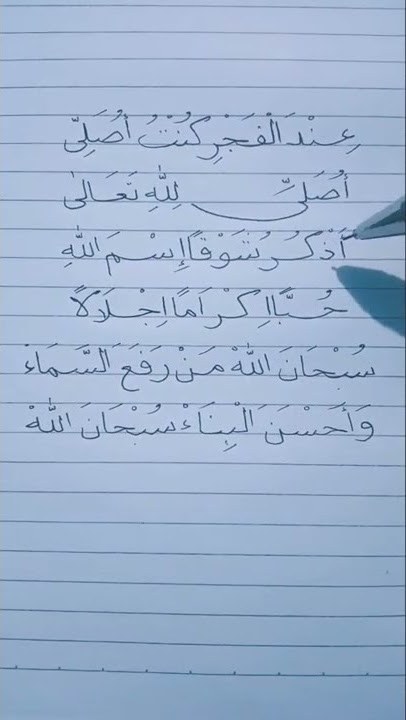 عِنْدَ الْفَجْرِ كُنْتُ أُصَلِّى
أُصَلِّى لِلّٰهِ تَعَالىٰ
أَذْكُرُ شَوْقًا إِسْمَ اللّٰهِ
حُبًّا اِكْرَامًا اِجْلَالًا
سُبْحَانَ اللّٰهْ مَنْ رَفَعَ السَّمَاءْ
وَأَحْسَنَ الْبِنَاءْ سُبْحَانَ اللّٰهْ